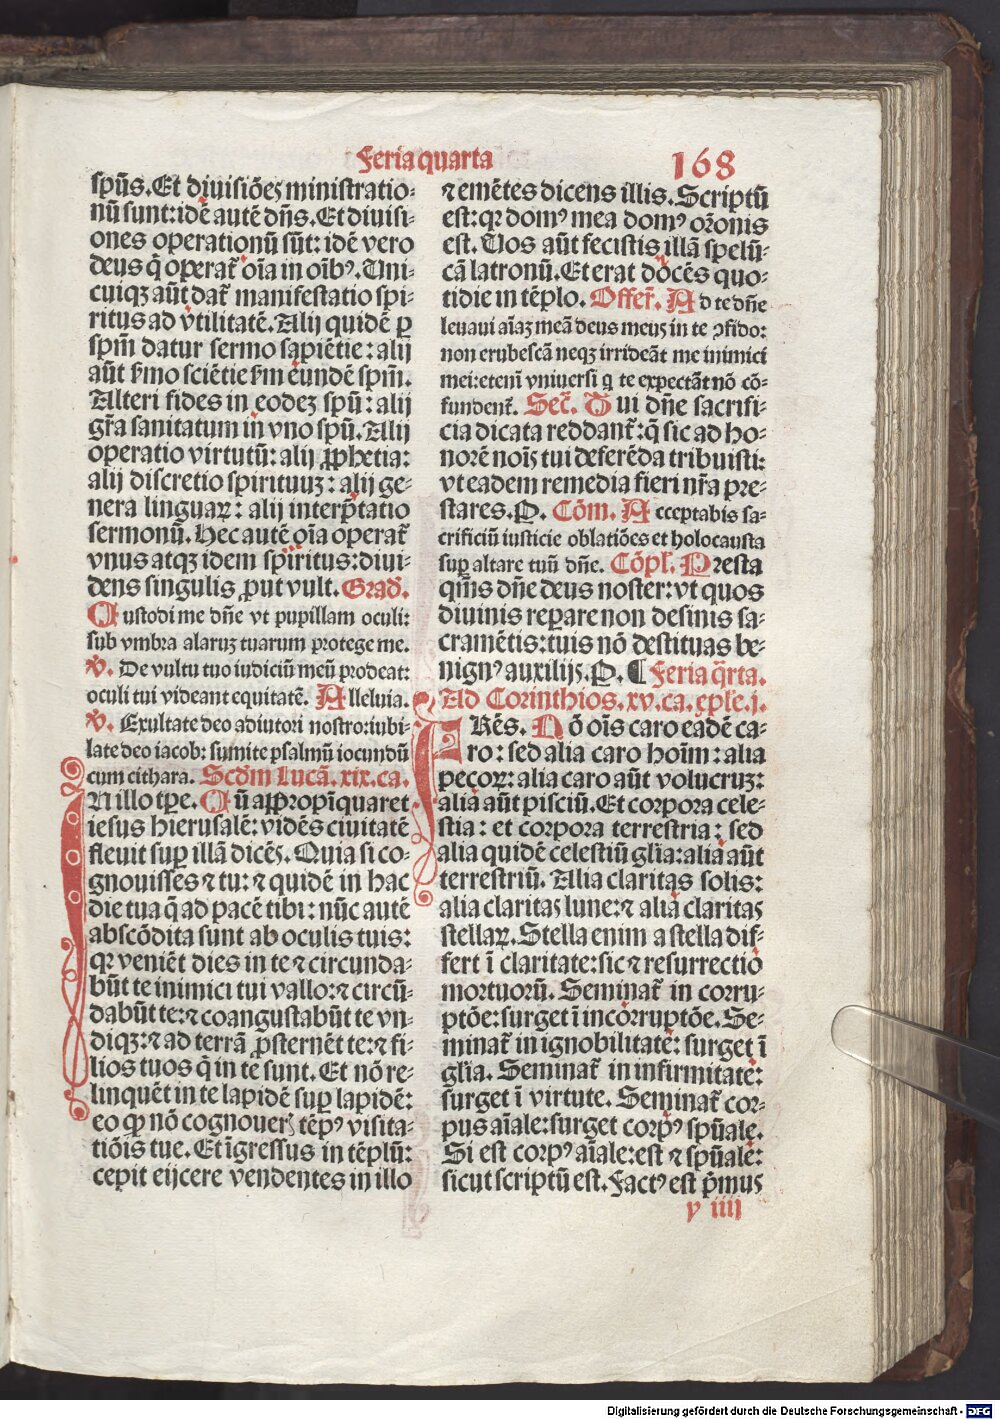 Feria quarta
168
spūs. Et diuisiōes ministratio-
nū sunt: idē autē dn̄s. Et diuisi-
ones operationū sūt: idē vero
deus q̄ operat᷑ oīa in oībꝰ. Uni-
cuiqꝫ aūt dat᷑ manifestatio spi-
ritus ad vtilitatē. Alij quidē ꝑ
spm̄ datur sermo sapiētie: alij
aūt ẜmo sciētie ẜm eundē spm̄.
Alteri fides in eodeꝫ spū: alij
gr̄a sanitatum in vno spū. Alij
operatio virtutū: alij ꝓphetia:
alij discretio spirituuꝫ: alij ge-
nera linguaꝝ: alij interp̄tatio
sermonū. Hec autē oīa operat᷑
vnus atqꝫ idem spiritus: diui-
dens singulis ꝓut vult. Grad̄.
Custodi me dn̄e vt pupillam oculi:
sub vmbra alaruꝫ tuarum protege me.
℣. De vultu tuo iudiciū meū prodeat:
oculi tui videant equitatē. Alleluia.
℣. Exultate deo adiutori nostro: iubi-
late deo iacob: sumite psalmū iocundū
cum cithara. Scd̄m Lucā. xix. ca.
In illo tꝑe. Cū appropīquaret
iesus hierusalē: vidēs ciuitatē
fleuit suꝑ illā dicēs. Quia si co-
gnouisses ⁊ tu: ⁊ quidē in hac
die tua q̄ ad pacē tibi: nūc autē
abscōdita sunt ab oculis tuis:
qꝛ veniēt dies in te ⁊ circunda-
būt te inimici tui vallo: ⁊ circū-
dabūt te: ⁊ coangustabūt te vn-
diqꝫ: ⁊ ad terrā ꝓsternēt te: ⁊ fi-
lios tuos q̄ in te sunt. Et nō re-
linquēt in te lapidē suꝑ lapidē:
eo ꝙ nō cognouerꝭ tēpꝰ visita-
tiōis tue. Et īgressus in tēplū:
cepit eijcere vendentes in illo
⁊ emētes dicens illis. Scriptū
est: qꝛ domꝰ mea domꝰ or̄onis
est. Vos aūt fecistis illā spelū-
cā latronū. Et erat docēs quo-
tidie in tēplo. Offer̄. Ad te dn̄e
leuaui aīaꝫ meā deus meus in te ꝯfido:
non erubescā neqꝫ irrideāt me inimici
mei: etenī vniuersi q te expectāt nō cō-
fundent᷑. Secr̄. Tui dn̄e sacrifi-
cia dicata reddant᷑: q̄ sic ad ho-
norē noīs tui deferēda tribuisti:
vt eadem remedia fieri nr̄a pre-
stares. P. Cōm. Acceptabis sa-
crificiū iusticie oblatiōes et holocausta
suꝑ altare tuū dn̄e. Cōpl̄. Presta
qm̄s dn̄e deus noster: vt quos
diuinis reparare non desinis sa-
cramētis: tuis nō destituas be-
nignꝰ auxilijs. P. ¶ Feria q̄rta.
Ad Corinthios. xv. ca. ep̄le. j.
FRēs. Nō oīs caro eadē ca-
ro: sed alia caro hoīm: alia
pecoꝝ: alia caro aūt volucruꝫ:
alia aūt pisciū. Et corpora cele-
stia: et corpora terrestria: sed
alia quidē celestiū gl̄ia: alia aūt
terrestriū. Alia claritas solis:
alia claritas lune: ⁊ alia claritas
stellaꝝ. Stella enim a stella dif-
fert ī claritate: sic ⁊ resurrectio
mortuorū. Seminat᷑ in corru-
ptōe: surget ī incorruptōe. Se-
minat᷑ in ignobilitate: surget ī
gl̄ia. Seminat᷑ in infirmitate:
surget ī virtute. Seminat᷑ cor-
pus aīale: surget corpꝰ spūale.
Si est corpꝰ aīale: est ⁊ spūale:
sicut scriptū est. Factꝰ est p̄mus
y iiij
Digitalisierung gefördert durch die Deutsche Forschungsgemeinschaft - DFG